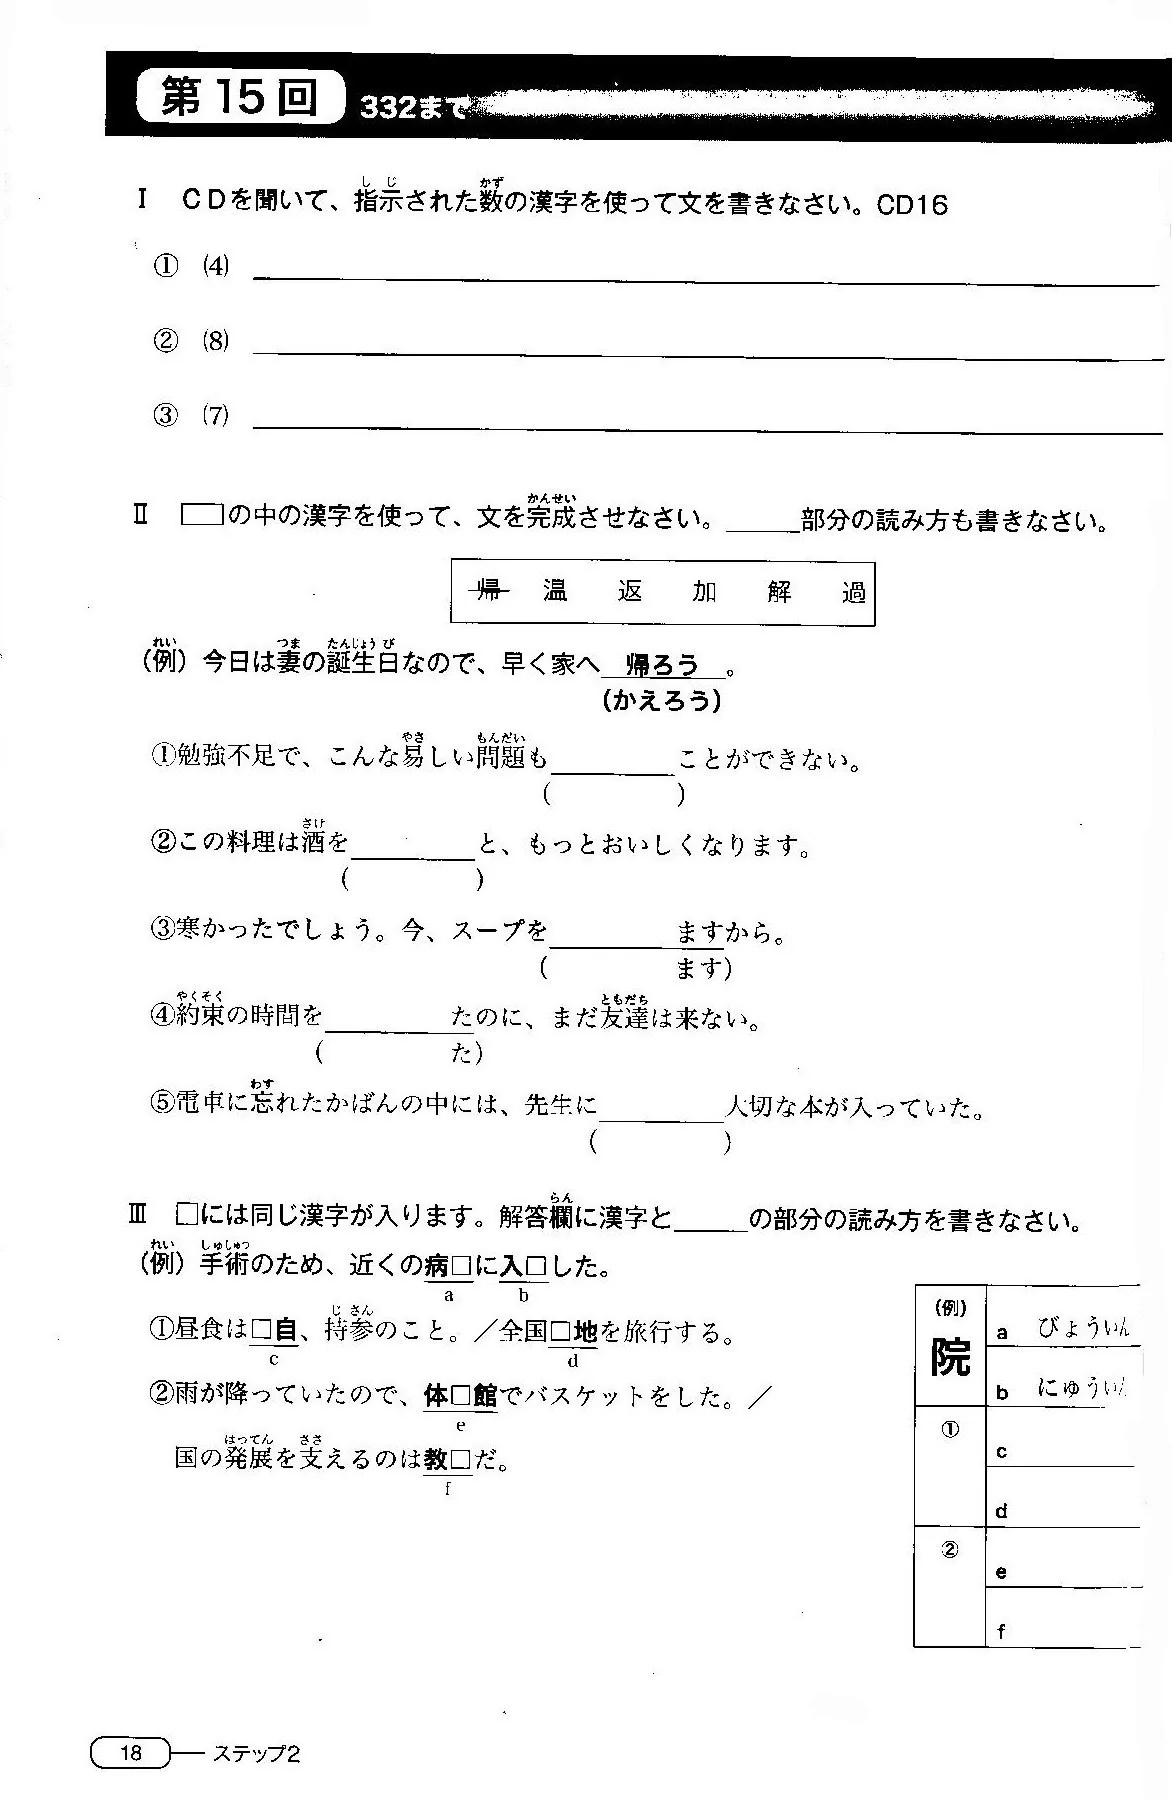 第15回 332まで
しじ かず
Ⅰ ＣＤを聞いて、指示された数の漢字を使って文を書きなさい。CD16
① (4)
② (8)
③ (7)
かんせい
Ⅱ □の中の漢字を使って、文を完成させなさい。_____部分の読み方も書きなさい。
帰 温 返 加 解 過
れい つま たんじょう び
（例）今日は妻の誕生日なので、早く家へ 帰ろう 。
(かえろう)
やさ もんだい
①勉強不足で、こんな易しい問題も________ことができない。
( )
さけ
②この料理は酒を________と、もっとおいしくなります。
( )
③寒かったでしょう。今、スープを________ますから。
( ます)
やくそく ともだち
④約束の時間を________たのに、まだ友達は来ない。
( た)
わす
⑤電車に忘れたかばんの中には、先生に________大切な本が入っていた。
( )
らん
Ⅲ □には同じ漢字が入ります。解答欄に漢字と_____の部分の読み方を書きなさい。
れい しゅじゅつ
（例）手術のため、近くの病□に入□した。
a b
じさん
①昼食は□自、持参のこと。／全国□地を旅行する。
c d
②雨が降っていたので、体□館でバスケットをした。／
e
はってん ささ
国の発展を支えるのは教□だ。
f
(例) 院
a びょういん
b にゅういん
① c
d
② e
f
18 ステップ2